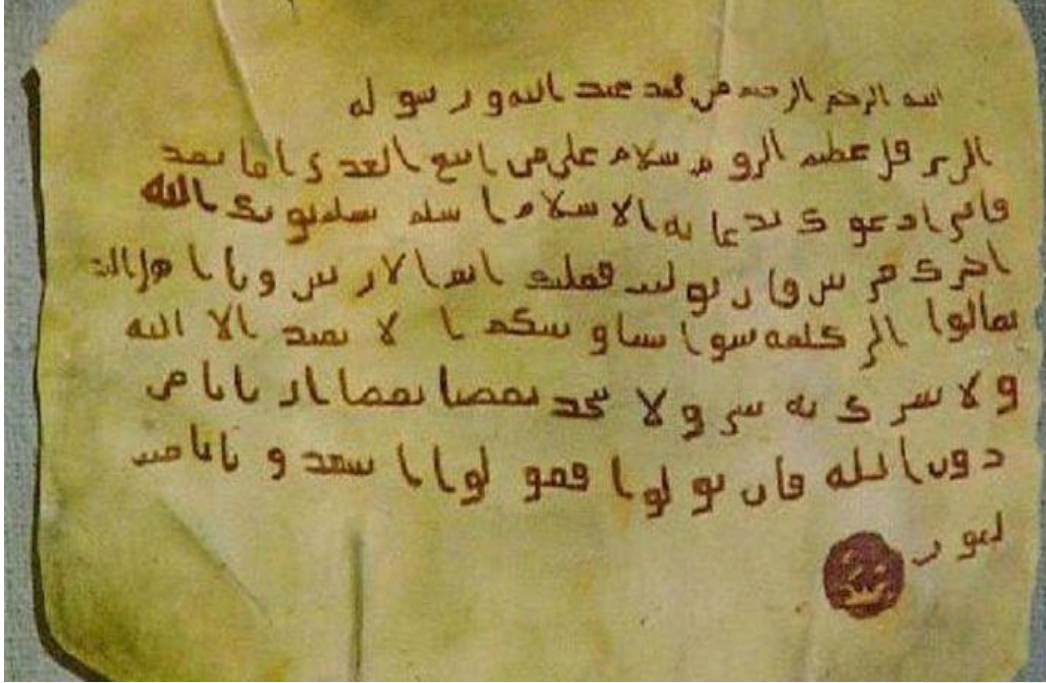 الله الرحمن الرحيم من محمد عبد الله ورسوله
الى هرقل عظيم الروم سلام على من اتبع الهدى اما بعد
فانى ادعوك بدعاية الاسلام اسلم تسلم يوتك الله
اجرك مرتين فان توليت فعليك اثم الاريسين ويا اهل الكتب
تعالوا الى كلمة سوا بيننا وبينكم ا لا نعبد الا الله
ولا نشرك به شيا ولا يتخذ بعضنا بعضا اربابا من
دون الله فان تولوا فقولوا اشهدوا بانا مس
لمون